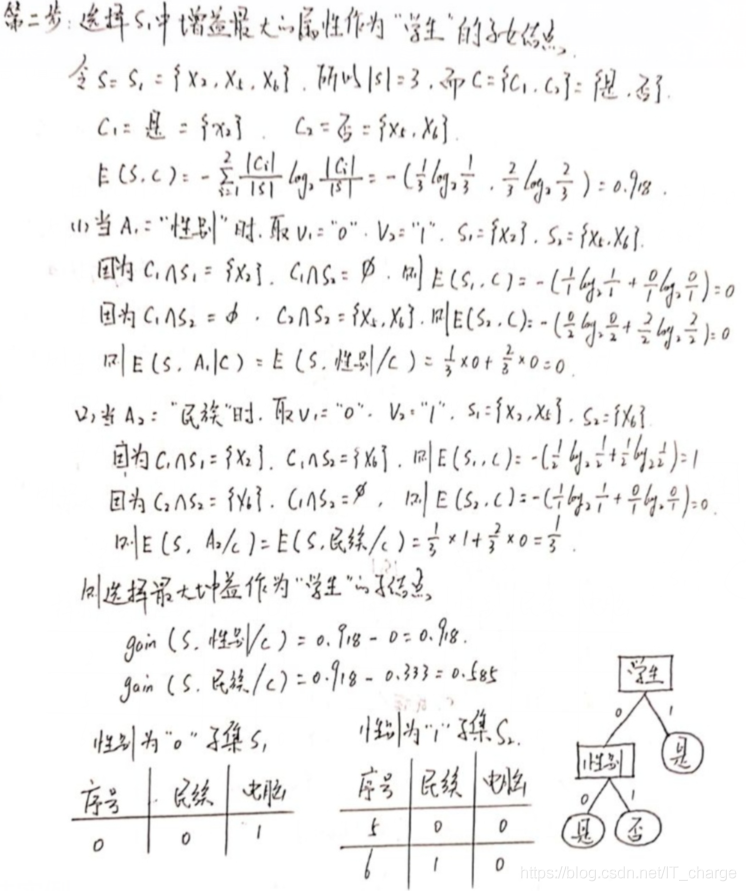 第二步:选择S₁中增益最大的属性作为“学生”的子女结点.
令S=S₁={X₂,X₅,X₆}.所以|S|=3,而C={C₁,C₂}={是,否}.
C₁=是={X₂}. C₂=否={X₅,X₆}.
E(S,C)=-∑²ᵢ₌₁ |Cᵢ|/|S| log₂ |Cᵢ|/|S| =-(1/3 log₂ 1/3 . 2/3 log₂ 2/3)=0.918.
(1)当A₁=“性别”时.取V₁=“0”.V₂=“1”.S₁={X₂}.S₂={X₅,X₆}.
因为C₁∩S₁={X₂}.C₁∩S₂=∅.则E(S₁,C)=-(1/1 log₂ 1/1 + 0/1 log₂ 0/1)=0
因为C₁∩S₂=∅.C₂∩S₂={X₅,X₆}.则E(S₂,C)=-(0/2 log₂ 0/2 + 2/2 log₂ 2/2)=0
则E(S,A₁|C)=E(S,性别/C)=1/3×0+2/3×0=0.
(2)当A₂=“民族”时.取V₁=“0”.V₂=“1”.S₁={X₂,X₅}.S₂={X₆}
因为C₁∩S₁={X₂}.C₁∩S₂={X₆}.则E(S₁,C)=-(1/2 log₂ 1/2 + 1/2 log₂ 1/2)=1
因为C₂∩S₂={X₆}.C₁∩S₂=∅,则E(S₂,C)=-(1/1 log₂ 1/1 + 0/1 log₂ 0/1)=0.
则E(S,A₂/C)=E(S,民族/C)=1/3×1+2/3×0=1/3.
则选择最大增益作为“学生”的子结点
gain(S,性别/C)=0.918-0=0.918.
gain(S,民族/C)=0.918-0.333=0.585
性别为“0”子集S₁
序号 民族 电脑
0 0 1
性别为“1”子集S₂.
序号 民族 电脑
5 0 0
6 1 0
学生
0 1
性别 是
0 1
是 否
https://blog.csdn.net/IT_charge